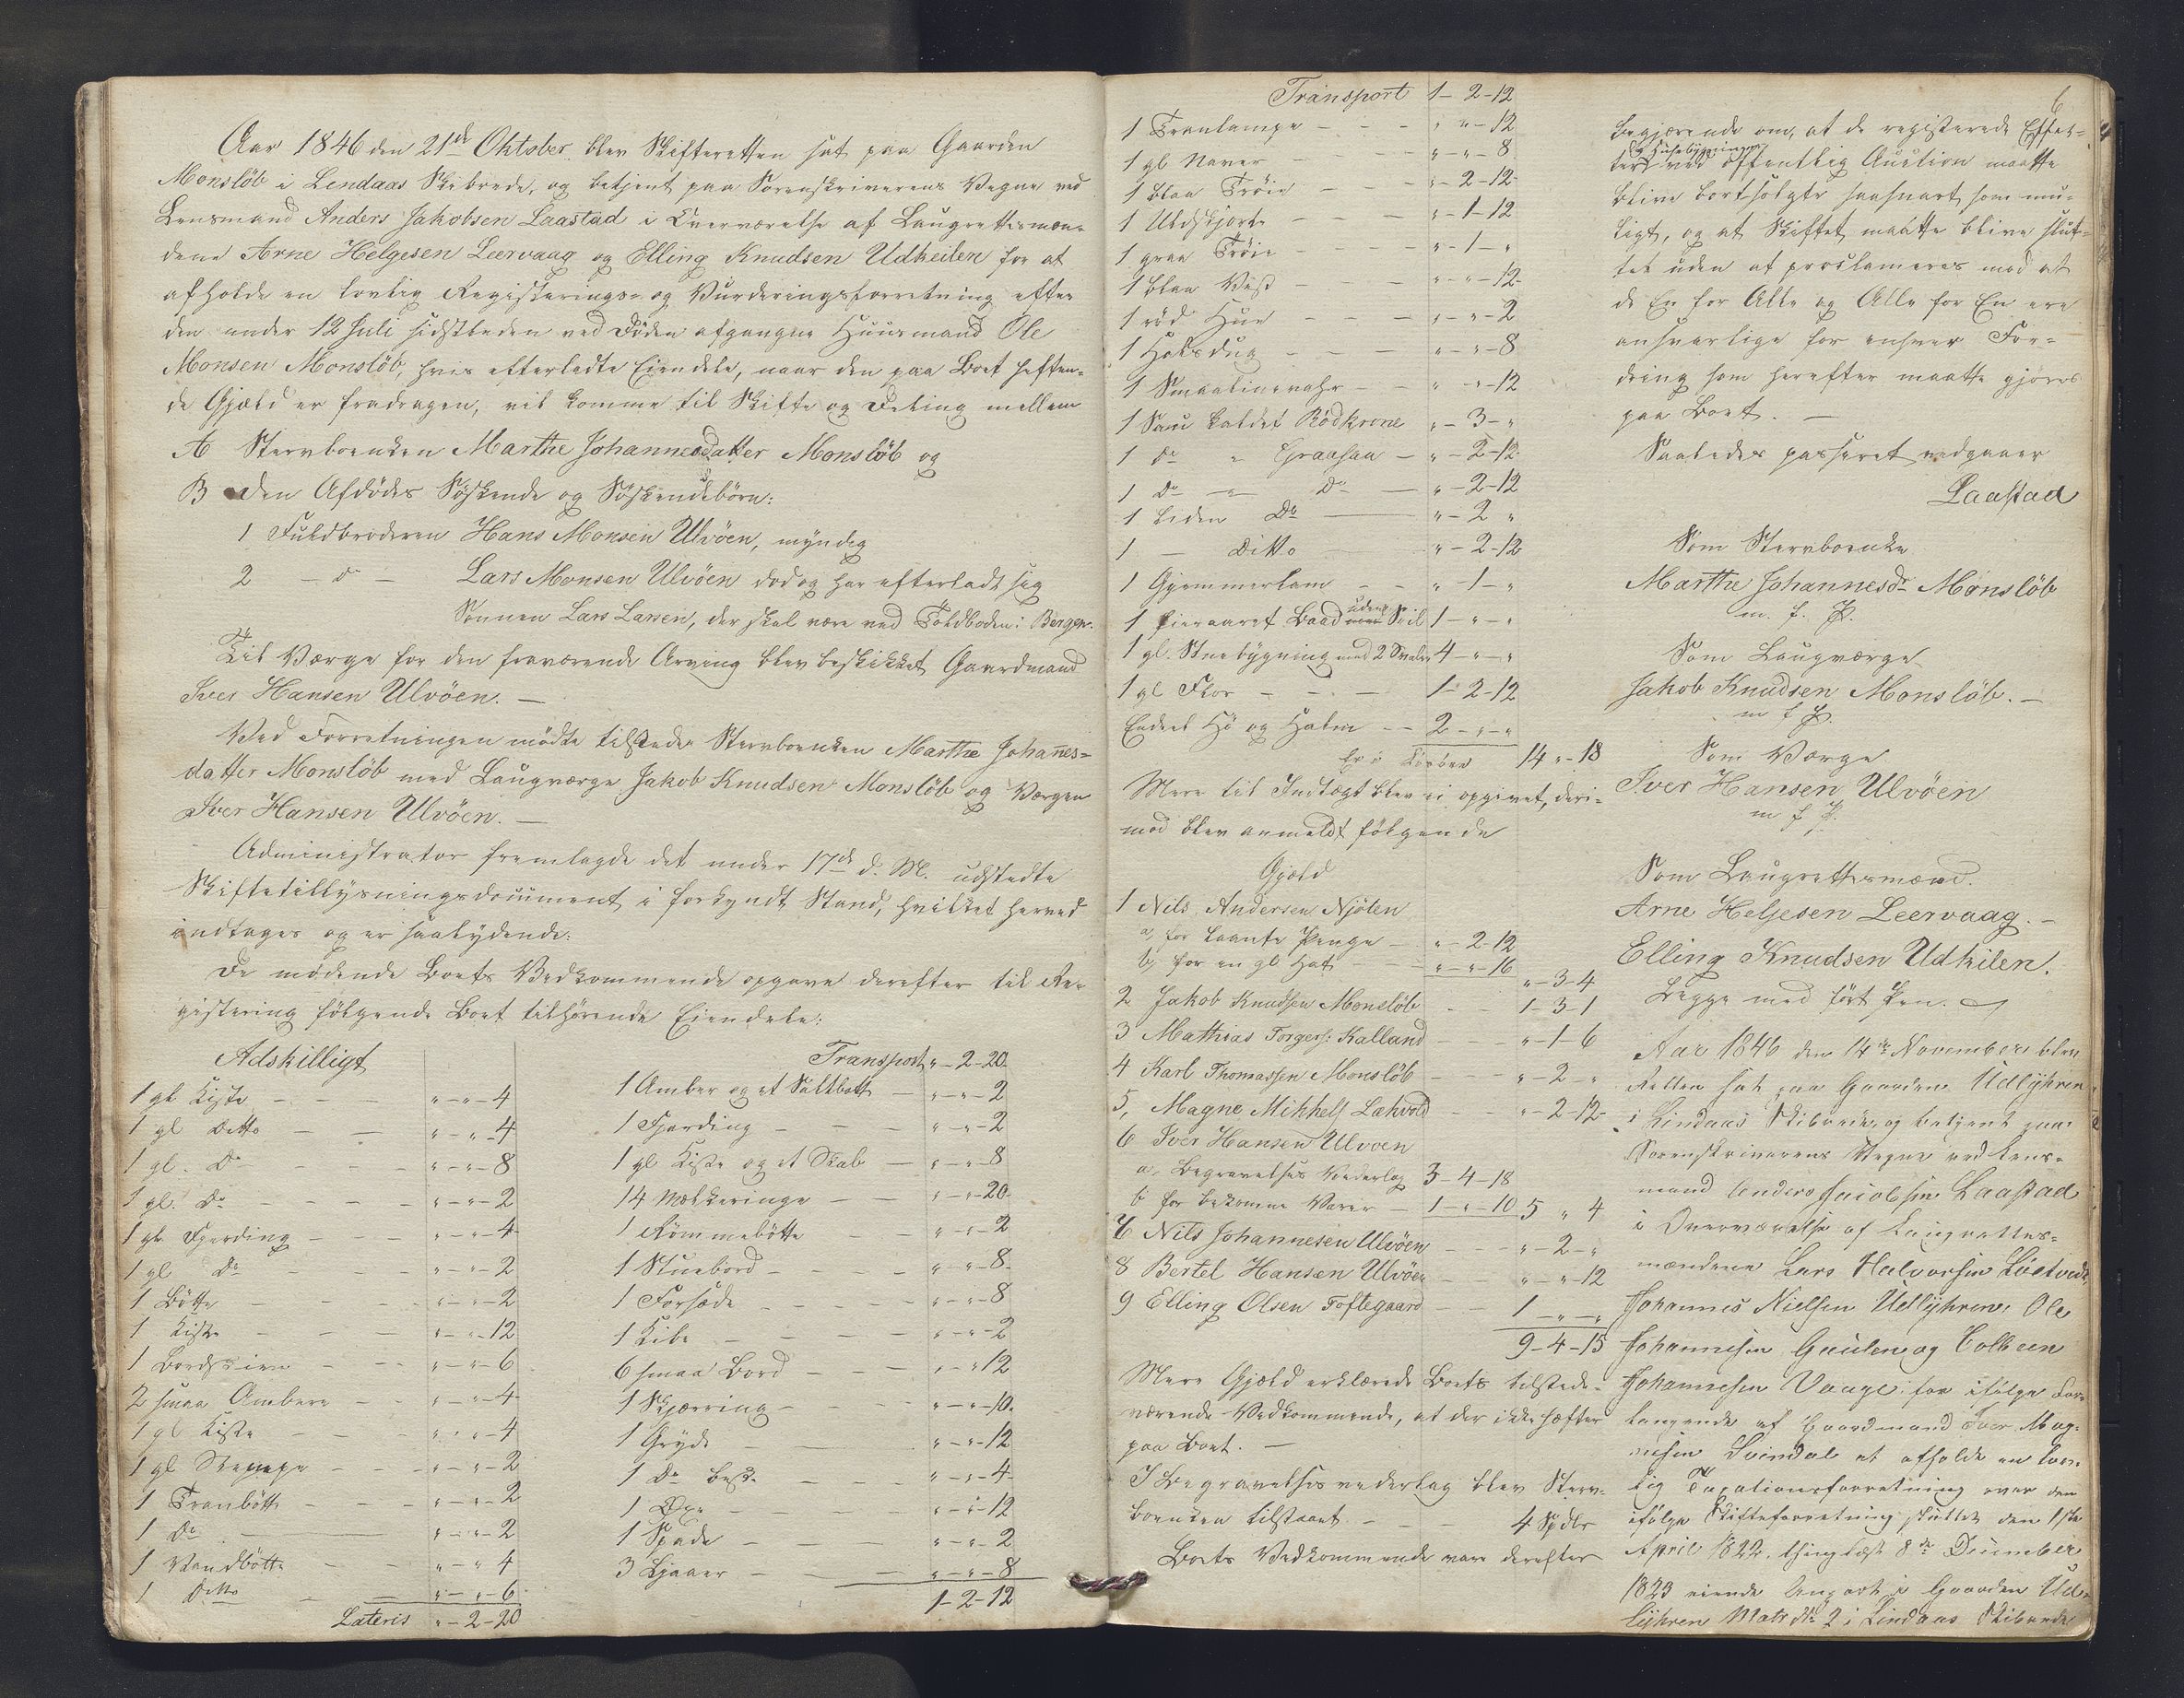 Aar 1846 den 21de Oktober blev Skifteretten sat paa Gaarden
Monslöb i Lendaas Skibrede, og betjent paa Sorenskriverens Vegne ved
Lensmand Anders Jakobsen Laastad i Overværelse af Laugrettesmæn-
dene Arne Helgesen Leervaag og Elling Knudsen Udkeilen for at
afholde en lovlig Registerings- og Vurderingsforretning efter
den under 12 Juli sidstleden ved Döden afgangne Huusmand Ole
Monsen Monslöb, hvis efterladte Eiendele, naar den paa Boet heften-
de Gjæld er fradragen, vil komme til Skifte og Deling mellem
A Stervboenken Marthe Johannesdatter Monslöb og
B den Afdödes Söskende og Söskendebörn:
1 Fuldbroderen Hans Monsen Ulvöen, myndig
2 - do - Lars Monsen Ulvöen död og har efterladt sig
Sönnen Lars Larsen, der skal være ved Toldboden i Bergen.
Til Værge for den fraværende Arving blev beskikket Gaardmand
Iver Hansen Ulvöen. —
Ved Forretningen mödte tilstede Stervboenken Marthe Johannes-
datter Monslöb med Laugværge Jakob Knudsen Monslöb og Værgen
Iver Hansen Ulvöen. —
Administrator fremlagde det under 17de d. M. udstedte
Skiftetillysningsdocument i forkyndt Stand, hvilket herved
indtages og er saalydende:
De mödende Boets Vedkommende opgave derefter til Re-
gistering fölgende Boet tilhörende Eiendele:
Adskilligt
1 gl Kiste - - - " - " - 4
1 gl Ditto - - " - " - 4
1 gl. Do - - - " - " - 8
1 gl. Do - - - " - " - 2
1 gl. Fjerding - - - " - " - 4
1 gl Do - - - " - " - 2
1 Bötte - - - " - " - 2
1 Kiste - - - " - " - 12
1 - - " - " - 6
2 smaa Ambere - - " - " - 4
1 gl Kiste - - " - " - 4
1 gl - - - " - " - 2
1 Tranbötte - - - " - " - 2
1 Do - - " - " - 2
1 Vandbötte - - " - " 4
1 Ditto - - " - " - 6
Lateris " - 2 - 20
Transport " - 2 - 20
1 Amber og et Saltbøtt - " - " - 2
1 Fjerding - - - " - " - 2
1 gl Kiste og et Skab - " - " - 8
14 Melkeringe - - " - " - 20
1 Römmebötte - - " - " - 2
1 Stuebord - - - - " - " - 8
1 Forsæde - - - - " - " - 8
1 Kibe - - - - " - " - 2
6 smaa Bord - - - " - " 12
1 Skjæring - - - - " - " - 10
1 Gryde - - - " - " - 12
1 Do - - - " - " - 4
1 Öxe - - - " - " - 12
1 Spade - - - " - " - 2
3 Ljaaer - - - " - " - 8
1 - 2 - 12
Transport 1 - 2 - 12
1 Tranlampe - - - " " - 12
1 gl Naver - - - " - " - 8
1 blaa Tröie - - - " - 2 - 12
1 Uldskjorte - - - " - 1 - 12
1 graa Tröie - - - " - 1 - "
1 blaa Vest - - - " - " - 12
1 röd Hue - - - " - " - 2
1 Halsdug - - - " - " - 8
1 - - " - " - 12
1 Sau kaldet Rödkrone " - 3 - "
1 do " Graasaa - " - 2 - 12
1 Do - " Do - " - 2 - 12
1 liden Do — " - 2 "
1 — Ditto " - 2 - 12
1 Gjemmerlam - - " - 1 - "
1 fireaaret Baad uden Seil 1 - " - "
1 gl. Stuebygning med 2 Svaler 4 - " - "
1 gl Flor - - - 1 - 2 - 12
Endeel Hö og Halm - - 2 - " - "
14 " - 18
Mere til Indtægt blev ei opgivet, deri-
mod blev anmeldt fölgende
Gjæld
1 Nils Andersen Njöten
a, for laante Penge - " - 2 - 12
b, for en gl Hat - " - " - 16 " - 3 - 4
2 Jakob Knudsen Monslöb - - 1 - 3 - 1
3 Mathias Torgers: Kalland - - " - 1 - 6
4 Karl Thomassen Monslöb - - - " - 2 - "
5, Magne Mikkels Lekvold - - " - 2 - 12
6 Iver Hansen Ulvoen
a, Begravelses Vederlag 3 - 4 - 18
b for bekomne Varer - 1 - " - 10 5 " 4
7 Nils Johannesen Ulvöen - - - " - 2 - "
8 Bertel Hansen Ulvöen - - " - " - 12
9 Elling Olsen Toftegaard - - 1 - " - "
9 - 4 - 15
Mere Gjæld erklærede Boets tilstede-
værende Vedkommende, at der ikke hæfter
paa Boet. —
I Begravelsesvederlag blev Sterv-
boenken tilstaaet - - - 4 Spdlr
Boets Vedkommende vare derefter
6
begjærende om, at de registerede Effek-
og Huusbygninger
ter ved offentlig Auction maatte
blive bortsolgte saasnart som mu-
ligt, og at Skiftet maatte blive slut-
tet uden at proclameres mod at
de En for Alle og Alle for En ere
ansvarlige for enhver For-
dring som herefter maatte gjöres
paa Boet. —
Saaledes passeret vedgaaer
Laastad
Som Stervboenke
Marthe Johannesdr Monslöb
m. f. P.
Som Laugværge
Jakob Knudsen Monslöb. —
m f P.
Som Værge
Iver Hansen Ulvöen
m f P.
Som Laugrettesmænd.
Arne Heljesen Leervaag. —
Elling Knudsen Udkilen.
Begge med fört Pen.
Aar 1846 den 14de November blev
Retten sat paa Gaarden Udlyhren
i Lindaas Skibrede, og betjent paa
Sorenskriverens Vegne ved Lens-
mand Anders Jacobsen Laastad
i Overværelse af Laugrettes-
mændene Lars Halvorsen
Johannes Nielsen Udlyhren, Ole
Johannesen Gaulen og
Johannesen Vaage for ifölge For-
langende af Gaardmand Iver Mag-
nesen Svindal at afholde en lov-
lig Taxationsforretning over den
ifölge Skifteforretning sluttet den 1ste
April 1822, thinglæst 8de December
1823 eiende Anpart i Gaarden Ud-
lyhren Matr No 2 i Lindaas Skibrede